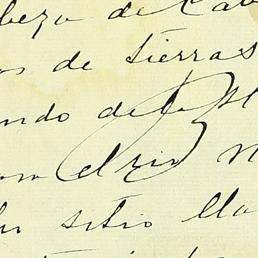 beza de Cab
os de tierras
ndo de la
con el rio
sitio lla